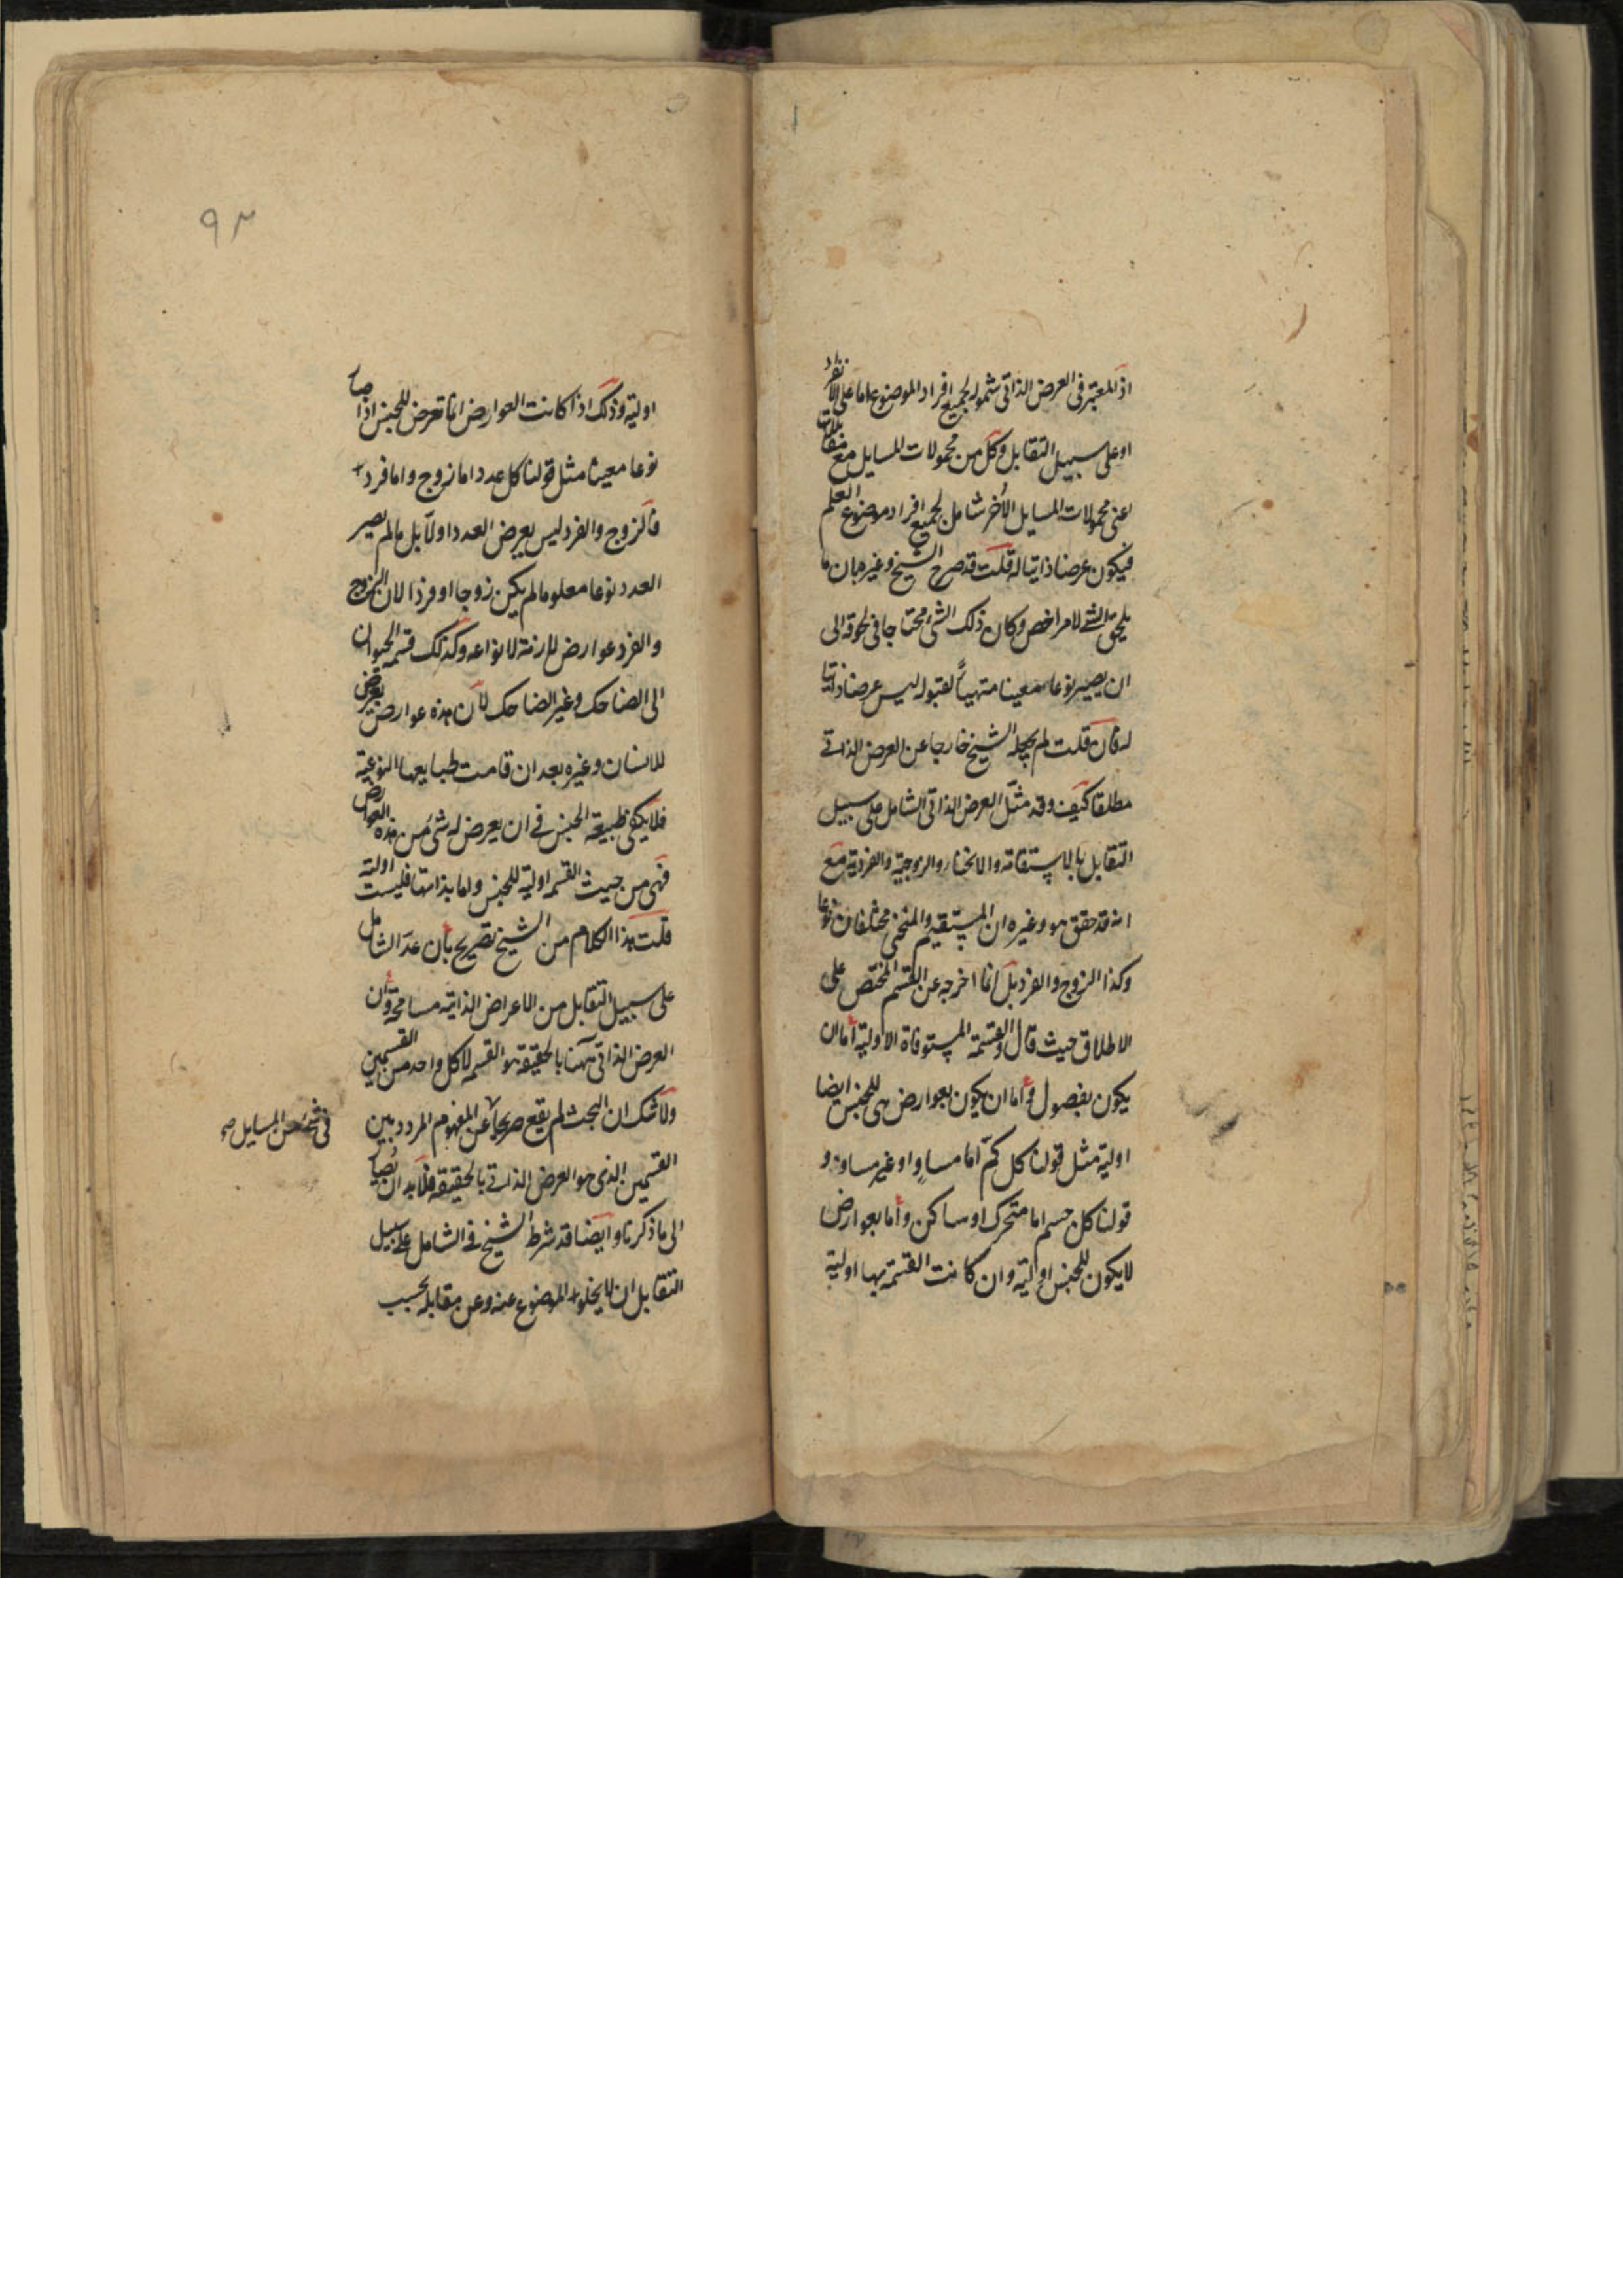 اذ المعتبر فى العرض الذاتى شموله لجميع افراد الموضوع اما على الانفراد
او على سبيل التقابل وكل من محمولات المسايل مع مقابلات
اعنى محمولات المسايل الأخر شامل لجميع افراد موضوع العلم
فيكون عرضا ذاتيا له قلت قد صرح الشيخ وغيره بان ما
يلحق الشئ لامر اخص وكان ذلك الشئ محتاجا فى لحوقه الى
ان يصير نوعا معينا متهيأ لقبوله ليس عرضا ذاتيا
له فان قلت لم يجعله الشيخ خارجا عن العرض الذاتى
مطلقا كيف وقد مثّل العرض الذاتى الشامل على سبيل
التقابل بالاستقامة والانحناء والزوجية والفردية مع
انه قد حقق هو وغيره ان المستقيم والمنحنى مختلفان نوعا
وكذا الزوج والفرد بل انما اخرجه عن القسم المختص على
الاطلاق حيث قال والقسمة المستوفاة الاولية اما ان
يكون بفصول واما ان يكون بعوارض هى للجنس ايضا
اولية مثل قولنا كل كمّ اما مساوٍ او غير مساو و
قولنا كل جسم اما متحرك او ساكن واما بعوارض
لا يكون للجنس اولية وان كانت القسمة بها اولية
٩٣
اولية وذلك اذا كانت العوارض انما تعرض للجنس اذا صار
نوعا معينا مثل قولنا كل عدد اما زوج واما فرد
فالزوج والفرد ليس يعرض العدد اولاً بل ما لم يصير
العدد نوعا معلوما لم يكن زوجا او فردا لان الزوج
والفرد عوارض لازمة لانواعه وكذلك قسمة الحيوان
الى الضاحك وغير الضاحك لأن هذه عوارض يعرض
للانسان وغيره بعد ان قامت طبايعها النوعية
فلا يكفى طبيعة الجنس فى ان يعرض له شئ من هذه العوارض
فهى من حيث القسمة اولية للجنس واما بذاتها فليست اولية
قلت هذا الكلام من الشيخ تصريح بأن عدّ الشامل
على سبيل التقابل من الاعراض الذاتية مسامحة وأن
العرض الذاتى ههنا بالحقيقة هو القسمة لا كل واحد من القسمين
ولا شك ان البحث لم يقع صريحا عن المفهوم المردد بين
فى شئ من المسايل صح
القسمين الذى هو العرض الذاتى بالحقيقة فلا بد ان يُصار
الى ما ذكرنا وايضا قد شرط الشيخ فى الشامل على سبيل
التقابل ان لا يخلو الموضوع عنه وعن مقابله بحسب